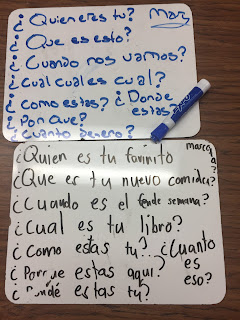 ¿Quien eres tu? Mar
¿Que es esto?
¿Cuando nos vamos?
¿Cual cual es cual?
¿Como estas? ¿Donde
estas?
¿Por que?
¿Cuanto dinero?
EXPO
¿Quien es tu favinito
¿Que es tu nuevo comida?
¿Cuando es el fende semana?
¿Cual es tu libro?
¿Como estas tu?.. ¿Cuanto
es
eso?
¿Porque estas aqui?
¿Donde estas tu?